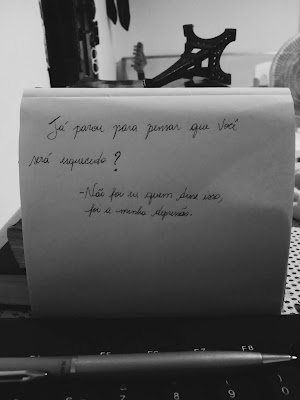 Já parou para pensar que você
será esquecido?
- Não foi eu quem disse isso,
foi a minha depressão.
F7
F8
7
8
9